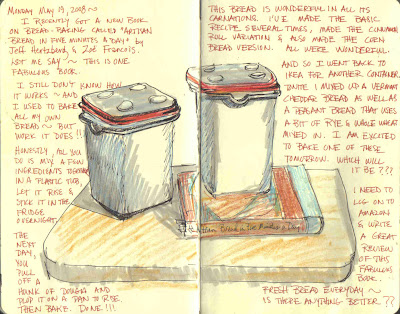 Monday May 19, 2008~
I recently got a new book
on bread-baking called "Artisan
Bread in Five Minutes a Day" by
Jeff Hertzberg & Zoë Francois.
Let me say ~ this is one
fabulous book.
I still don't know how
it works ~ and
I used to bake
all my own
bread ~ but
work it does!!
Honestly, all you
do is mix a few
ingredients together
in a plastic tub,
let it rise &
stick it in the
fridge
overnight.
The
next
day,
you
pull
off a
hunk of dough and
plop it on a pan to rise.
Then bake. Done!!!
This bread is wonderful in all its
carnations. I've made the basic
recipe several times, made the cinnamon
roll variation & also made the corn
bread version. All were wonderful.
And so I went back to
Ikea for another container.
Tonite I mixed up a Vermont
cheddar bread as well as
a peasant bread that uses
a bit of rye & whole wheat
mixed in. I am excited
to bake one of these
tomorrow. Which will
it be???
I need to
log on to
Amazon
& write
a great
review
of this
fabulous
book.
Artisan Bread in Five Minutes a Day
Fresh bread everyday ~
is there anything better??